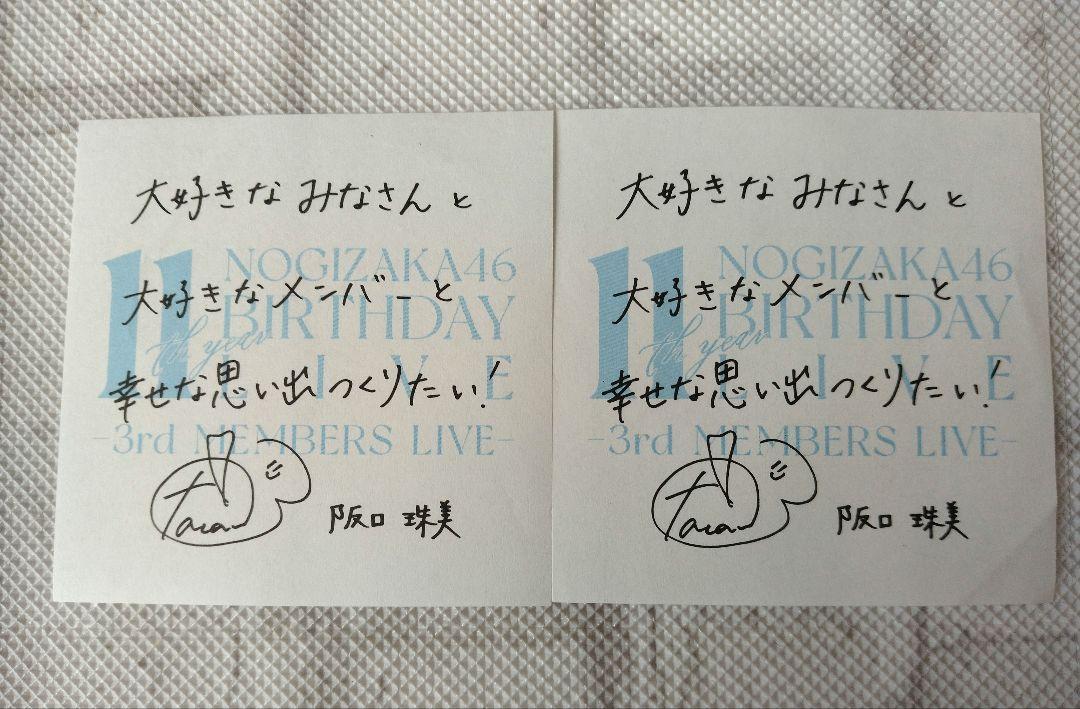 大好きな みなさんと
11th year
NOGIZAKA46
大好きなメンバーと
BIRTHDAY
LIVE
幸せな思い出つくりたい!
-3rd MEMBERS LIVE-
阪口 珠美
大好きな みなさんと
11th year
NOGIZAKA46
大好きなメンバーと
BIRTHDAY
LIVE
幸せな思い出つくりたい!
-3rd MEMBERS LIVE-
阪口 珠美